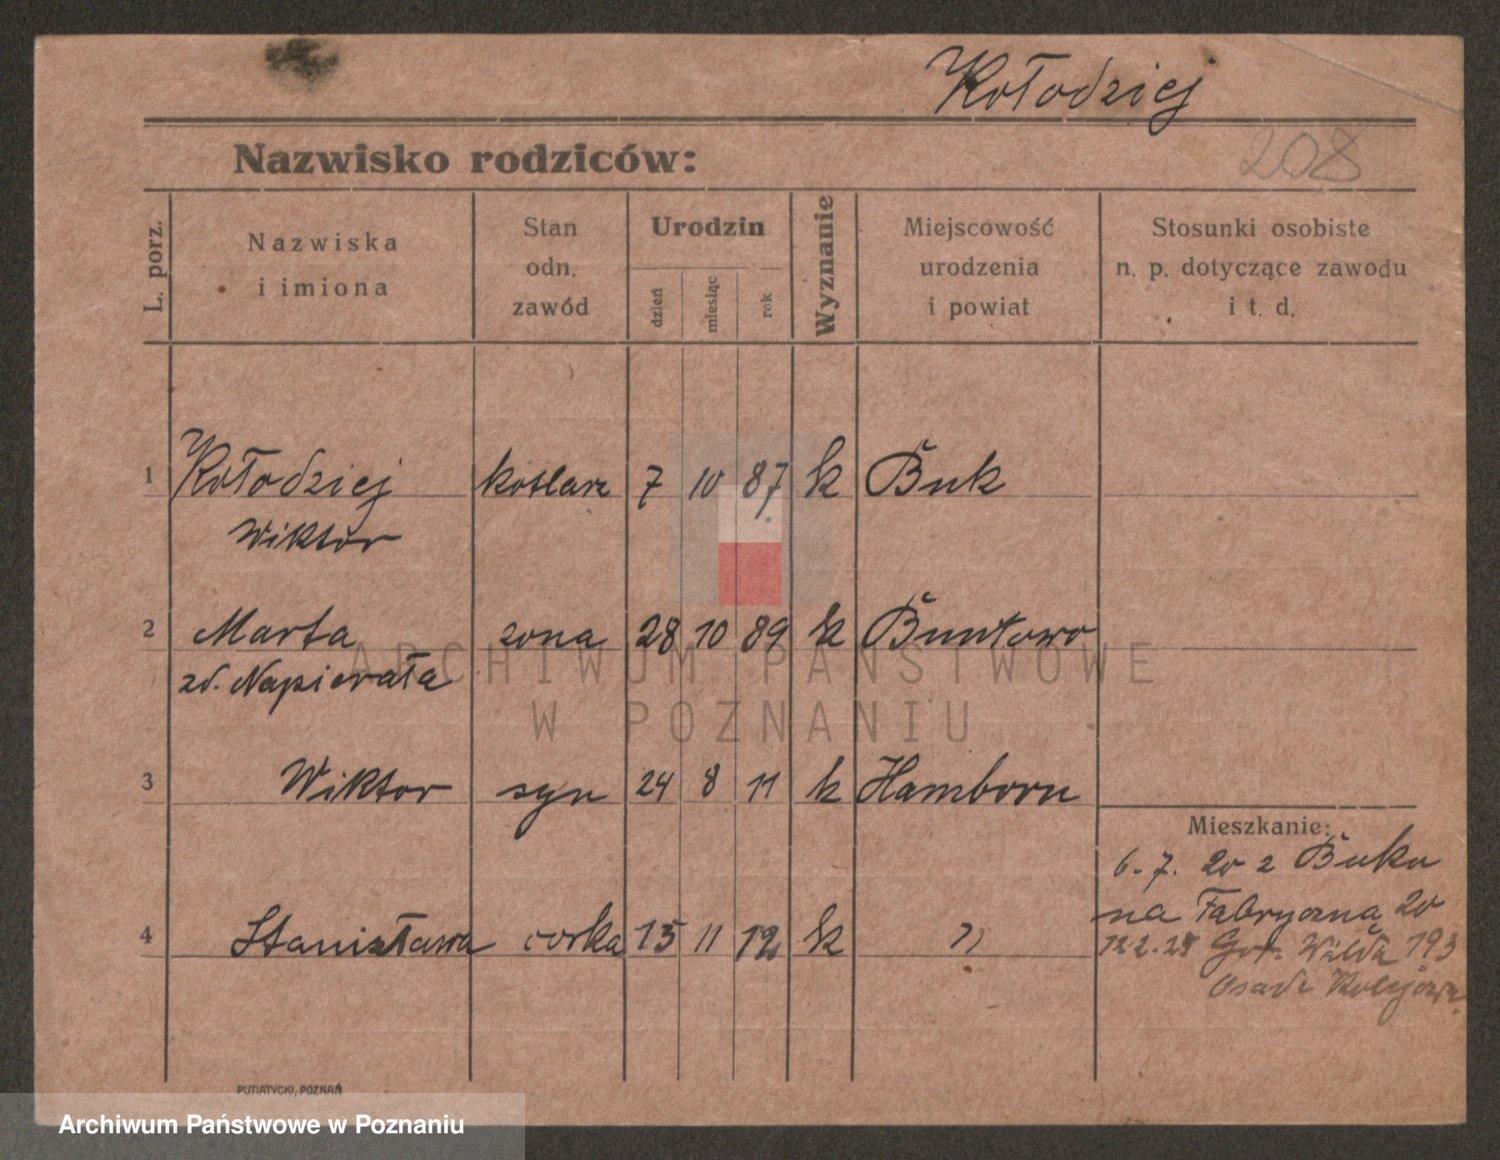 Kołodziej
208
Nazwisko rodziców:
L. porz.
Nazwiska
i imiona
Stan
odn.
zawód
Urodzin
dzień
miesiąc
rok
Wyznanie
Miejscowość
urodzenia
i powiat
Stosunki osobiste
n. p. dotyczące zawodu
i t. d.
1 Kołodziej kotlarz 7 10 87 k Buk
Wiktor
2 Marta zona 28 10 89 k
zd. Napierała
3 Wiktor syn 24 8 11 k Hamborn
4 Stanisława corka 15 11 12 k "
Mieszkanie:
6. 7. 20 z Buku
na Fabryczną 20
12.2.28 Gór. Wilda 193
Osada Kolejowa
PUTIATYCKI, POZNAŃ
ARCHIWUM PAŃSTWOWE
W POZNANIU
Archiwum Państwowe w Poznaniu